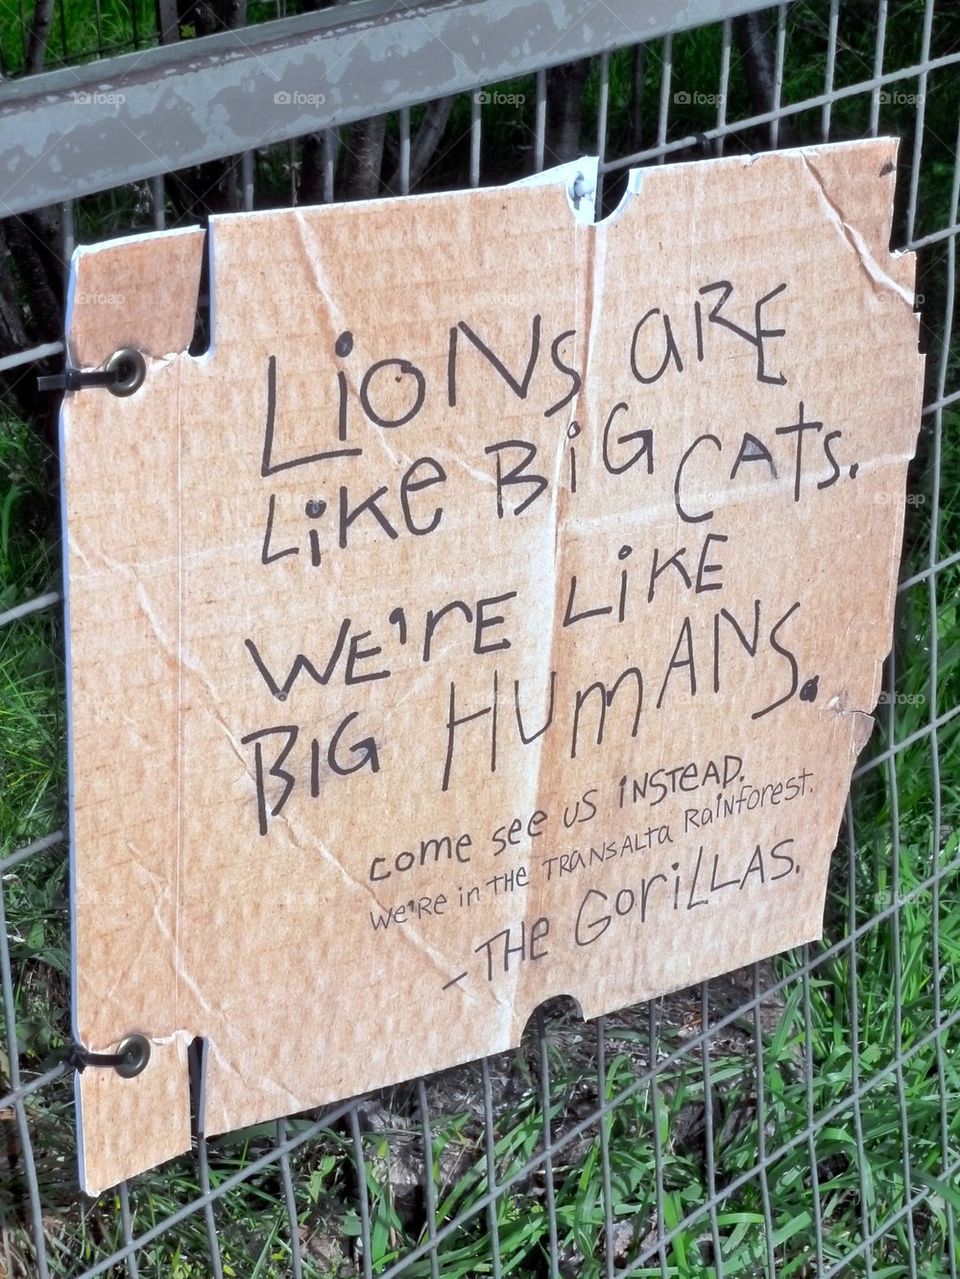 LiONS aRE
LiKe BiG CATS.
WE'rE LiKE
BIG HUmANS.
come see us iNSTeAD.
We'Re in THe TRaNSALTa RaiNForesT.
-THe GoriLLAS.